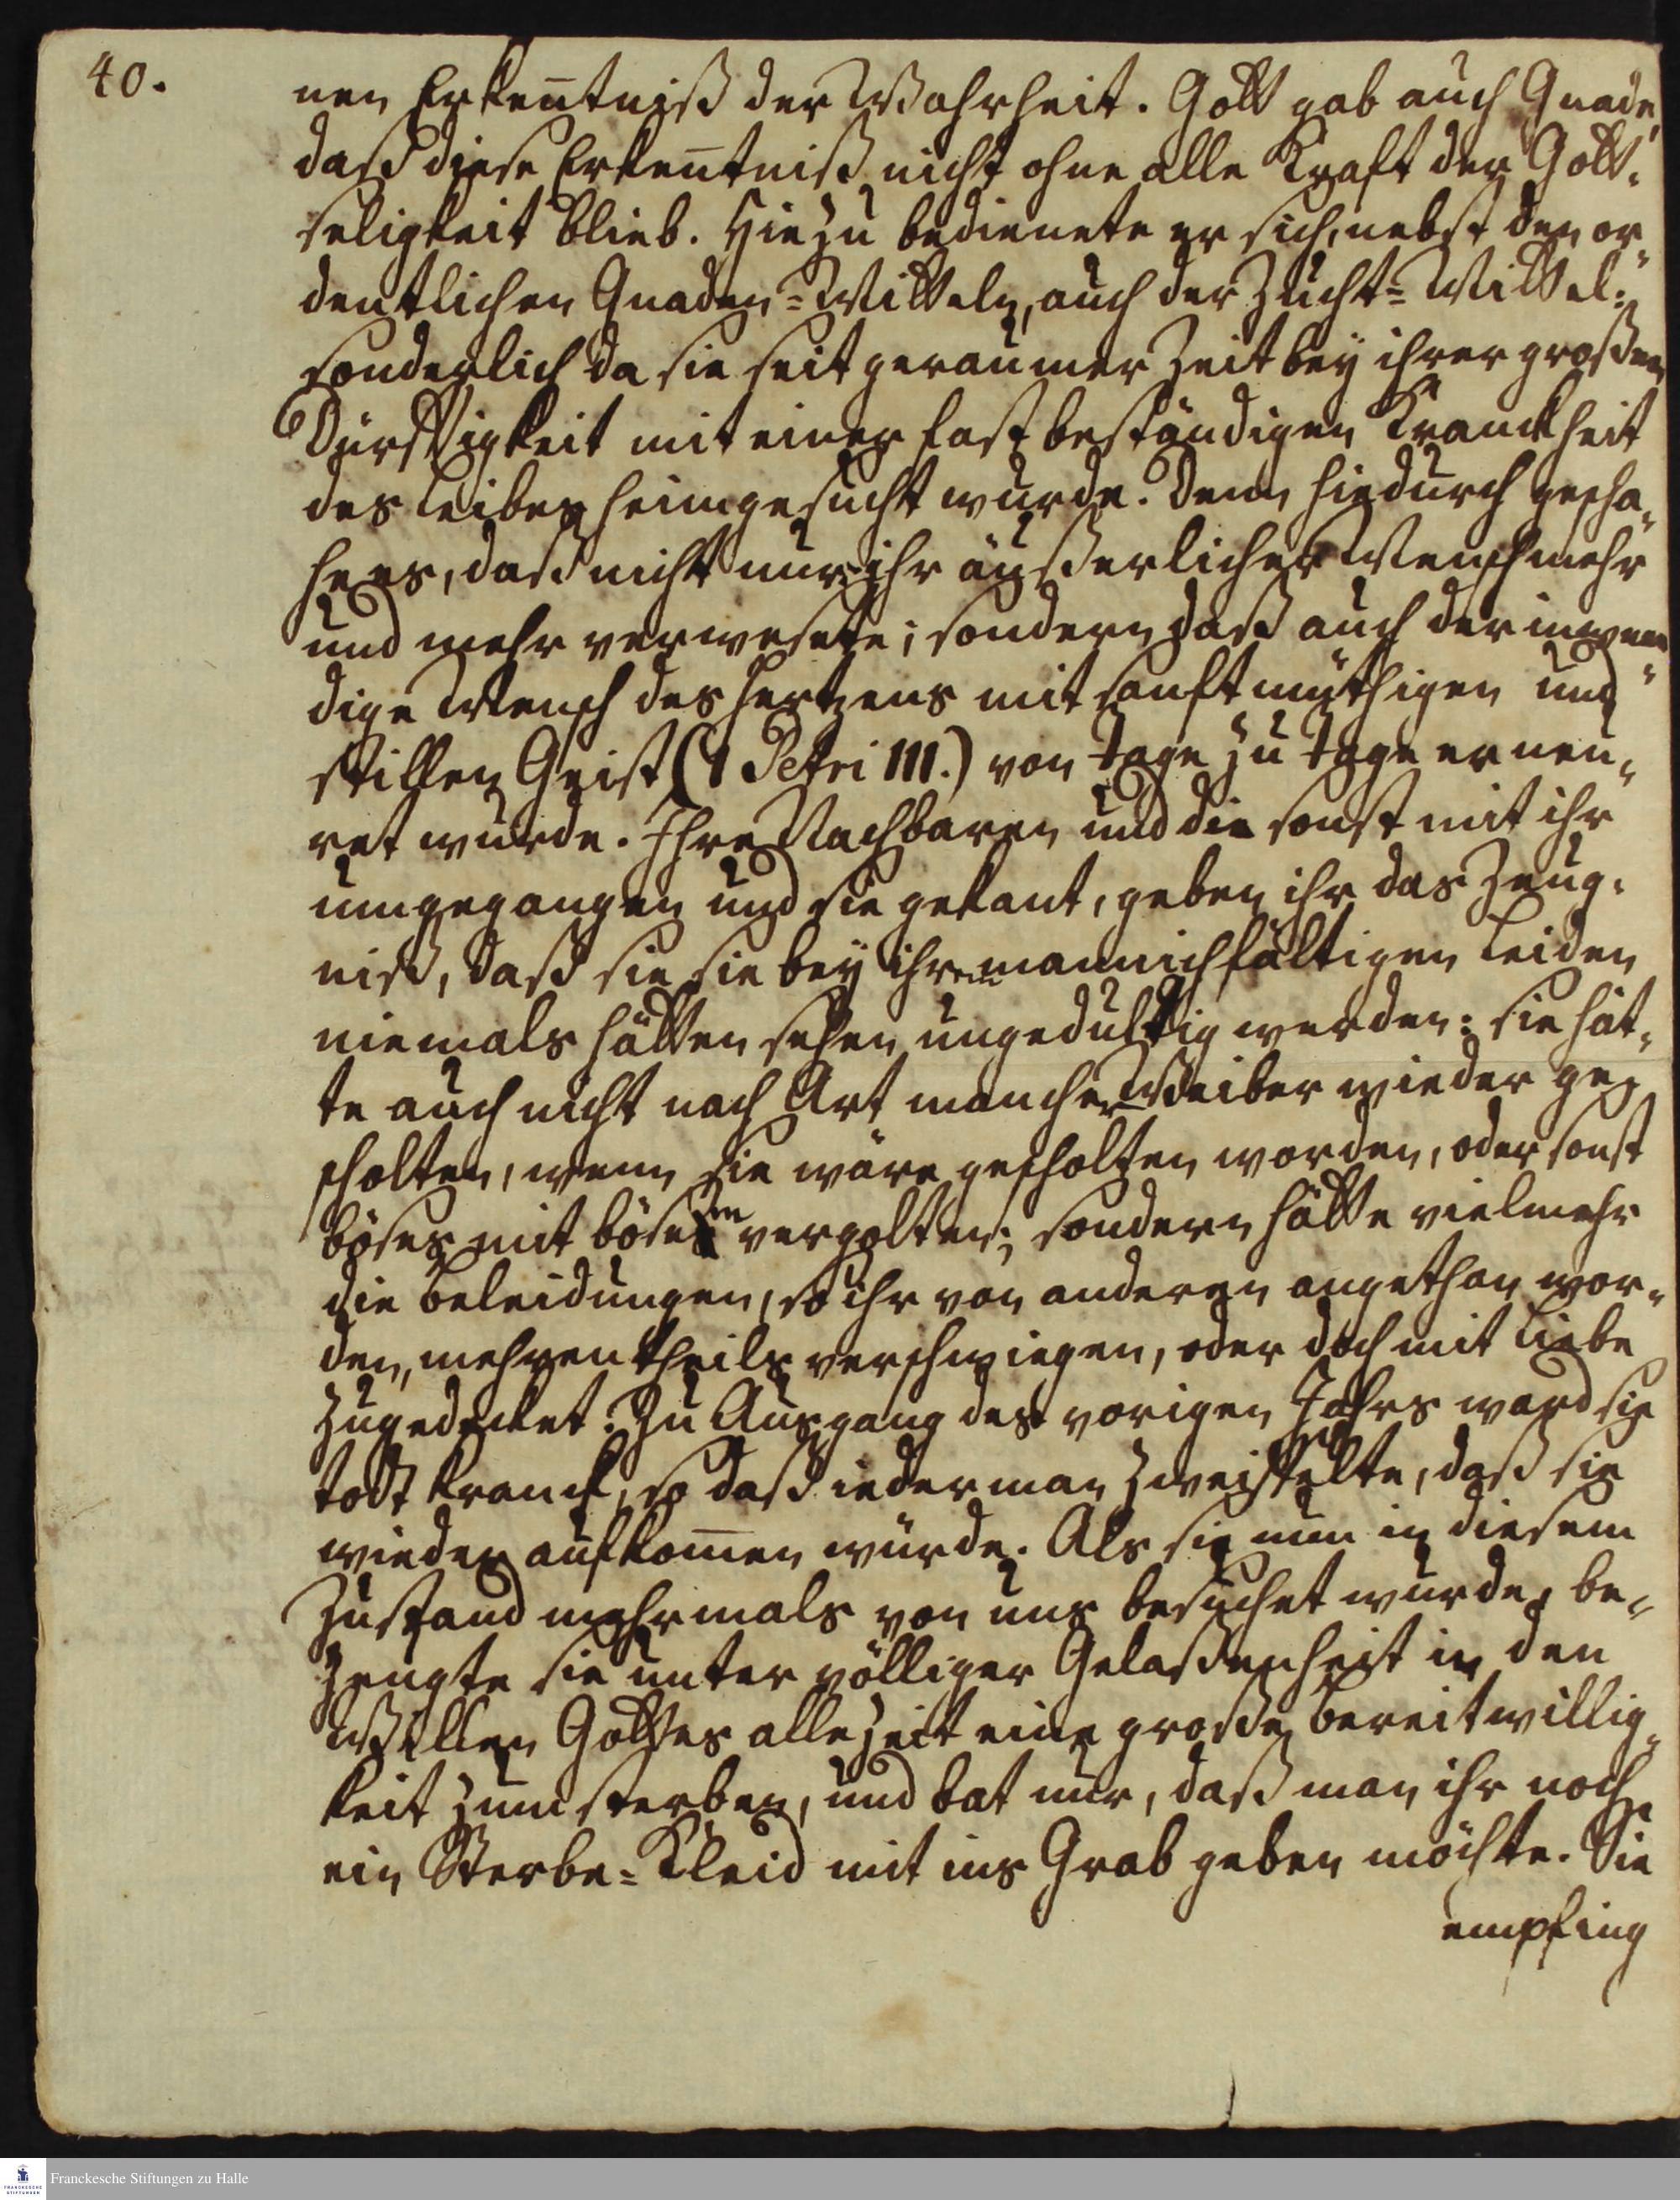 40.
nen Erken̄tniß der Wahrheit. Gott gab auch Gnade,
daß diese Erken̄tniß nicht ohne alle Kraft der Gott-
seligkeit blieb. Hiezu bedienete er sich, nebst den or-
dentlichen Gnaden-Mitteln, auch der Zucht-Mittel:
sonderlich da sie seit geraumer Zeit bey ihrer großen
Dürfftigkeit mit einer fast beständigen Kranckheit
des Leibes heimgesucht wurde. Denn hiedurch gescha-
he es, daß nicht nur ihr äußerlicher Mensch mehr
und mehr verwesete; sondern daß auch der inwen-
dige Mensch des Hertzens mit sanftmüthigen und
stillen Geist (1 Petri III.) von Tage zu Tage erneu-
ret wurde. Ihre Nachbaren und die sonst mit ihr
umgegangen und sie gekant, geben ihr das Zeug-
niß, daß sie sie bey ihrem mannichfältigen Leiden
niemals hätten sehen ungedultig werden: sie hät-
te auch nicht nach Art mancher Weiber wieder ge-
scholten, wenn sie wäre gescholten worden, oder sonst
böses mit bösem vergolten; sondern hätte vielmehr
die Beleidungen, so ihr von anderen angethan wor-
den, mehrentheils verschwiegen, oder doch mit Liebe
zugedecket. Zu Ausgang des vorigen Jahrs ward sie
todt kranck, so daß iederman zweiffelte, daß sie
wieder aufkom̄en würde. Als sie nun in diesem
Zustand mehrmals von uns besuchet wurde, be-
zeugte sie unter völliger Gelaßenheit in den
Willen Gottes allezeit eine große Bereitwillig-
keit zum sterben, und bat nur, daß man ihr noch
ein Sterbe-Kleid mit ins Grab geben möchte. Sie
empfing
Franckesche Stiftungen zu Halle
FRANCKESCHE
STIFTUNGEN